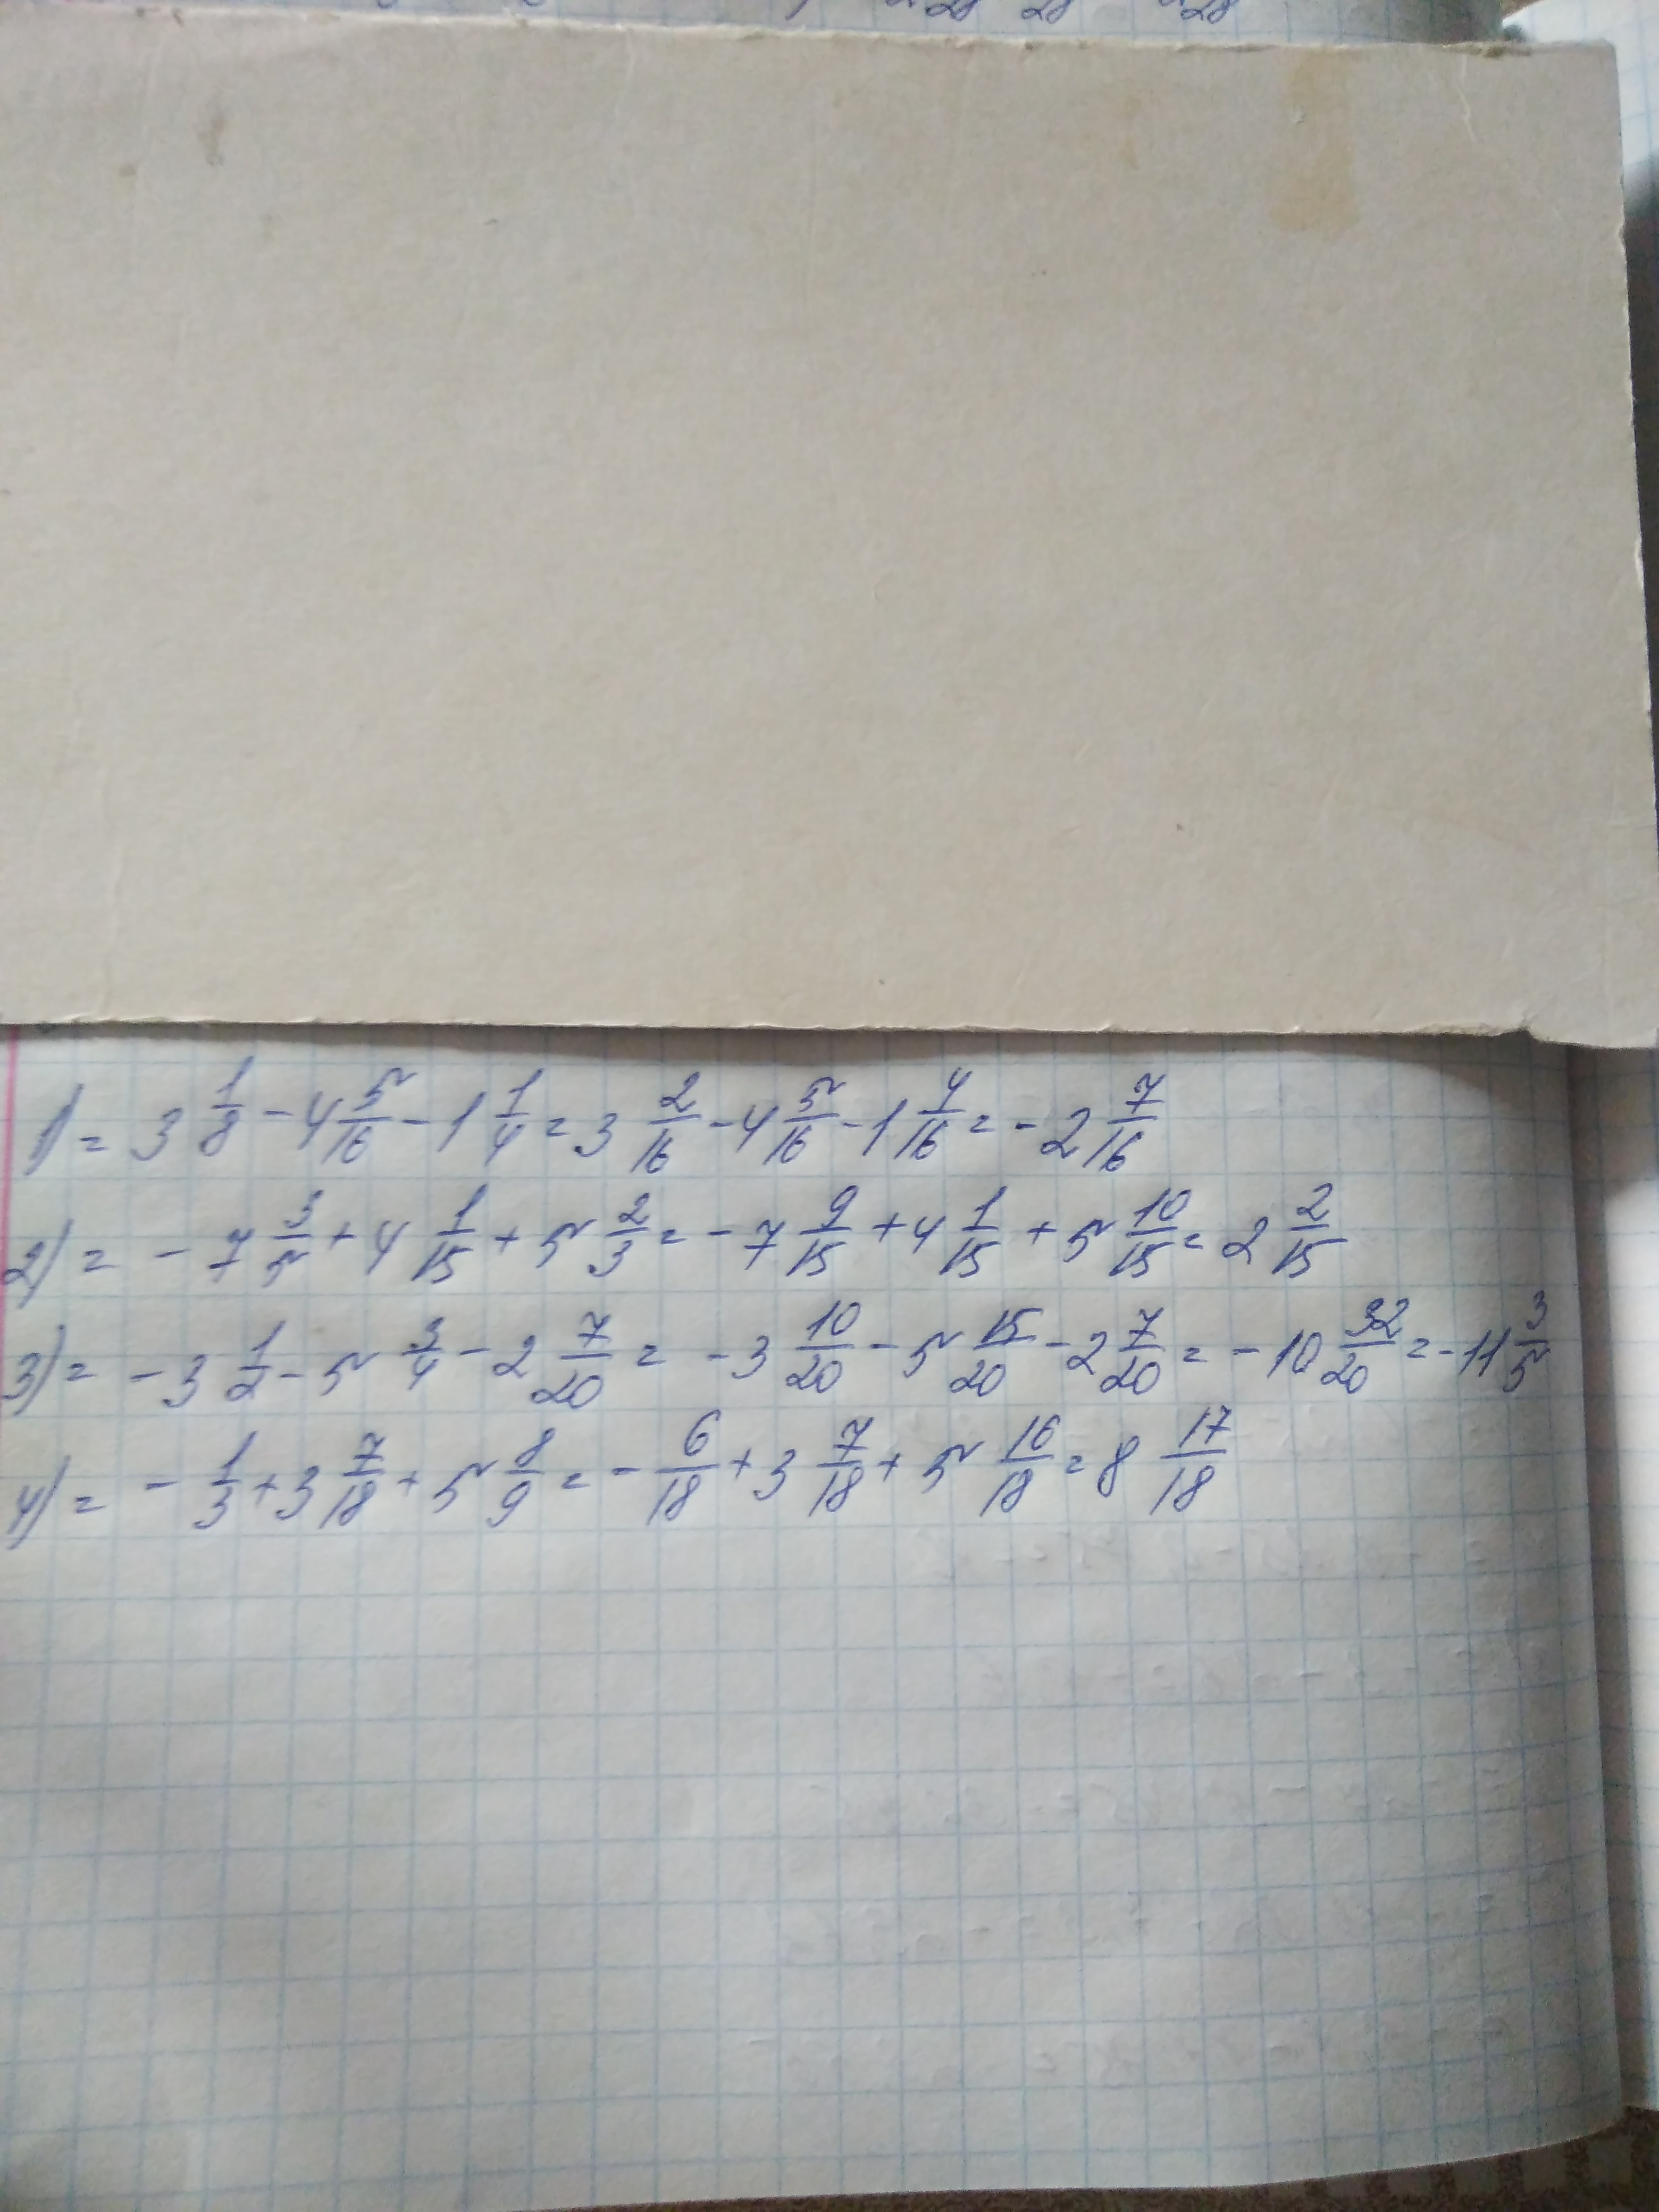 28 28 28
1) = 3 1/8 - 4 5/16 - 1 1/4 = 3 2/16 - 4 5/16 - 1 4/16 = - 2 7/16
2) = - 7 3/5 + 4 1/15 + 5 2/3 = - 7 9/15 + 4 1/15 + 5 10/15 = 2 2/15
3) = - 3 1/2 - 5 3/4 - 2 7/20 = - 3 10/20 - 5 15/20 - 2 7/20 = - 10 32/20 = - 11 3/5
4) = - 1/3 + 3 7/18 + 5 8/9 = - 6/18 + 3 7/18 + 5 16/18 = 8 17/18